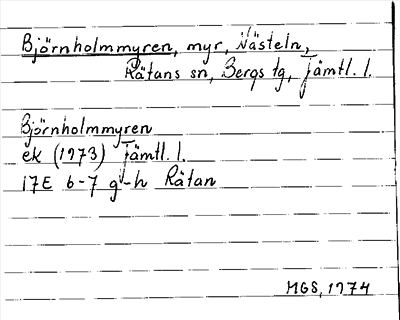 Björnholmmyren, myr, Nästeln,
Rätans sn, Bergs tg, Jämtl. l.
Björnholmmyren
ek (1973) Jämtl. l.
17E 6-7 g-h Rätan
MGS, 1974